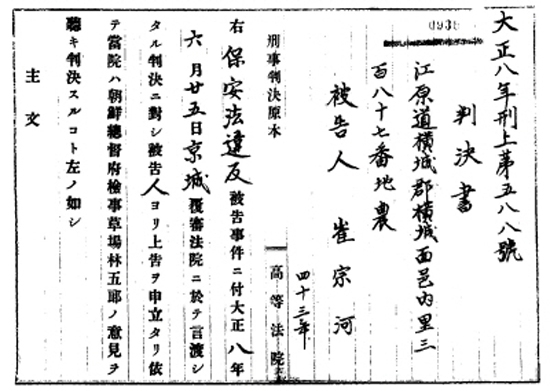 0938
大正八年刑上第五八八號
判決書
江原道橫城郡橫城面邑內里三
百八十七番地農
被告人 崔宗河
四十三年
刑事判決原本
高等法院
右保安法違反被告事件ニ付大正八年
六月廿五日京城覆審法院ニ於テ言渡シ
タル判決ニ對シ被告人ヨリ上告ヲ申立タリ依
テ當院ハ朝鮮總督府檢事草場林五郎ノ意見ヲ
聽キ判決スルコト左ノ如シ
主文